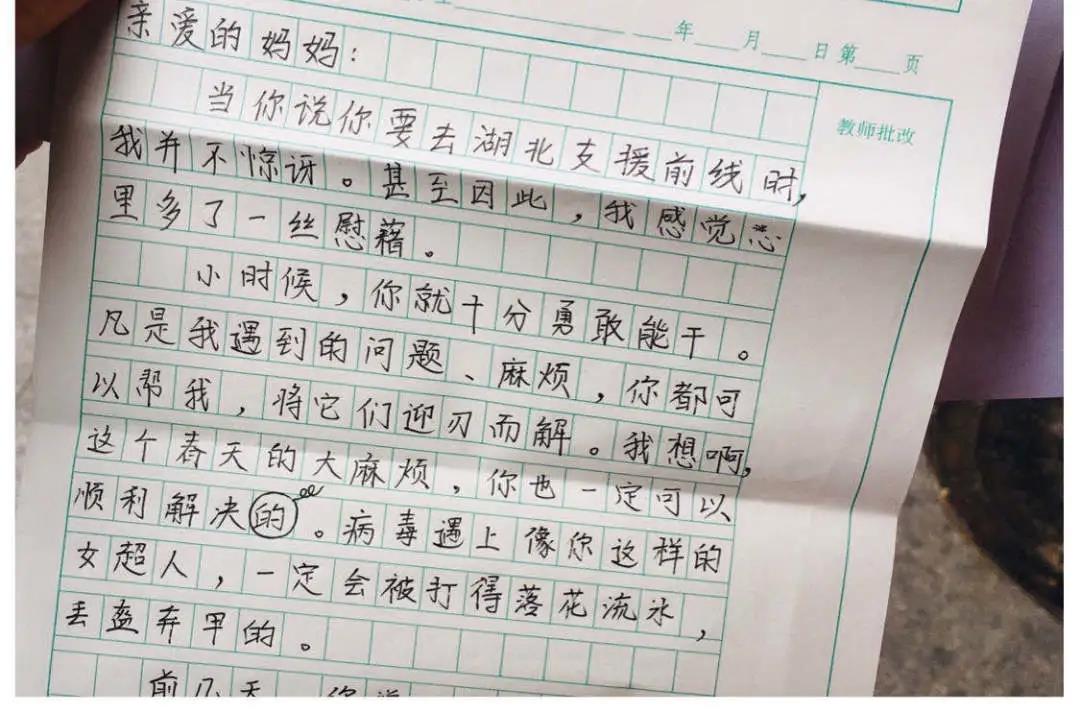 年 月 日 第 页
教师批改
亲爱的妈妈：
当你说你要去湖北支援前线时，
我并不惊讶。甚至因此，我感觉心
里多了一丝慰藉。
小时候，你就十分勇敢能干。
凡是我遇到的问题、麻烦，你都可
以帮我，将它们迎刃而解。我想啊，
这个春天的大麻烦，你也一定可以
顺利解决的。病毒遇上像您这样的
女超人，一定会被打得落花流水，
丢盔弃甲的。
前几天